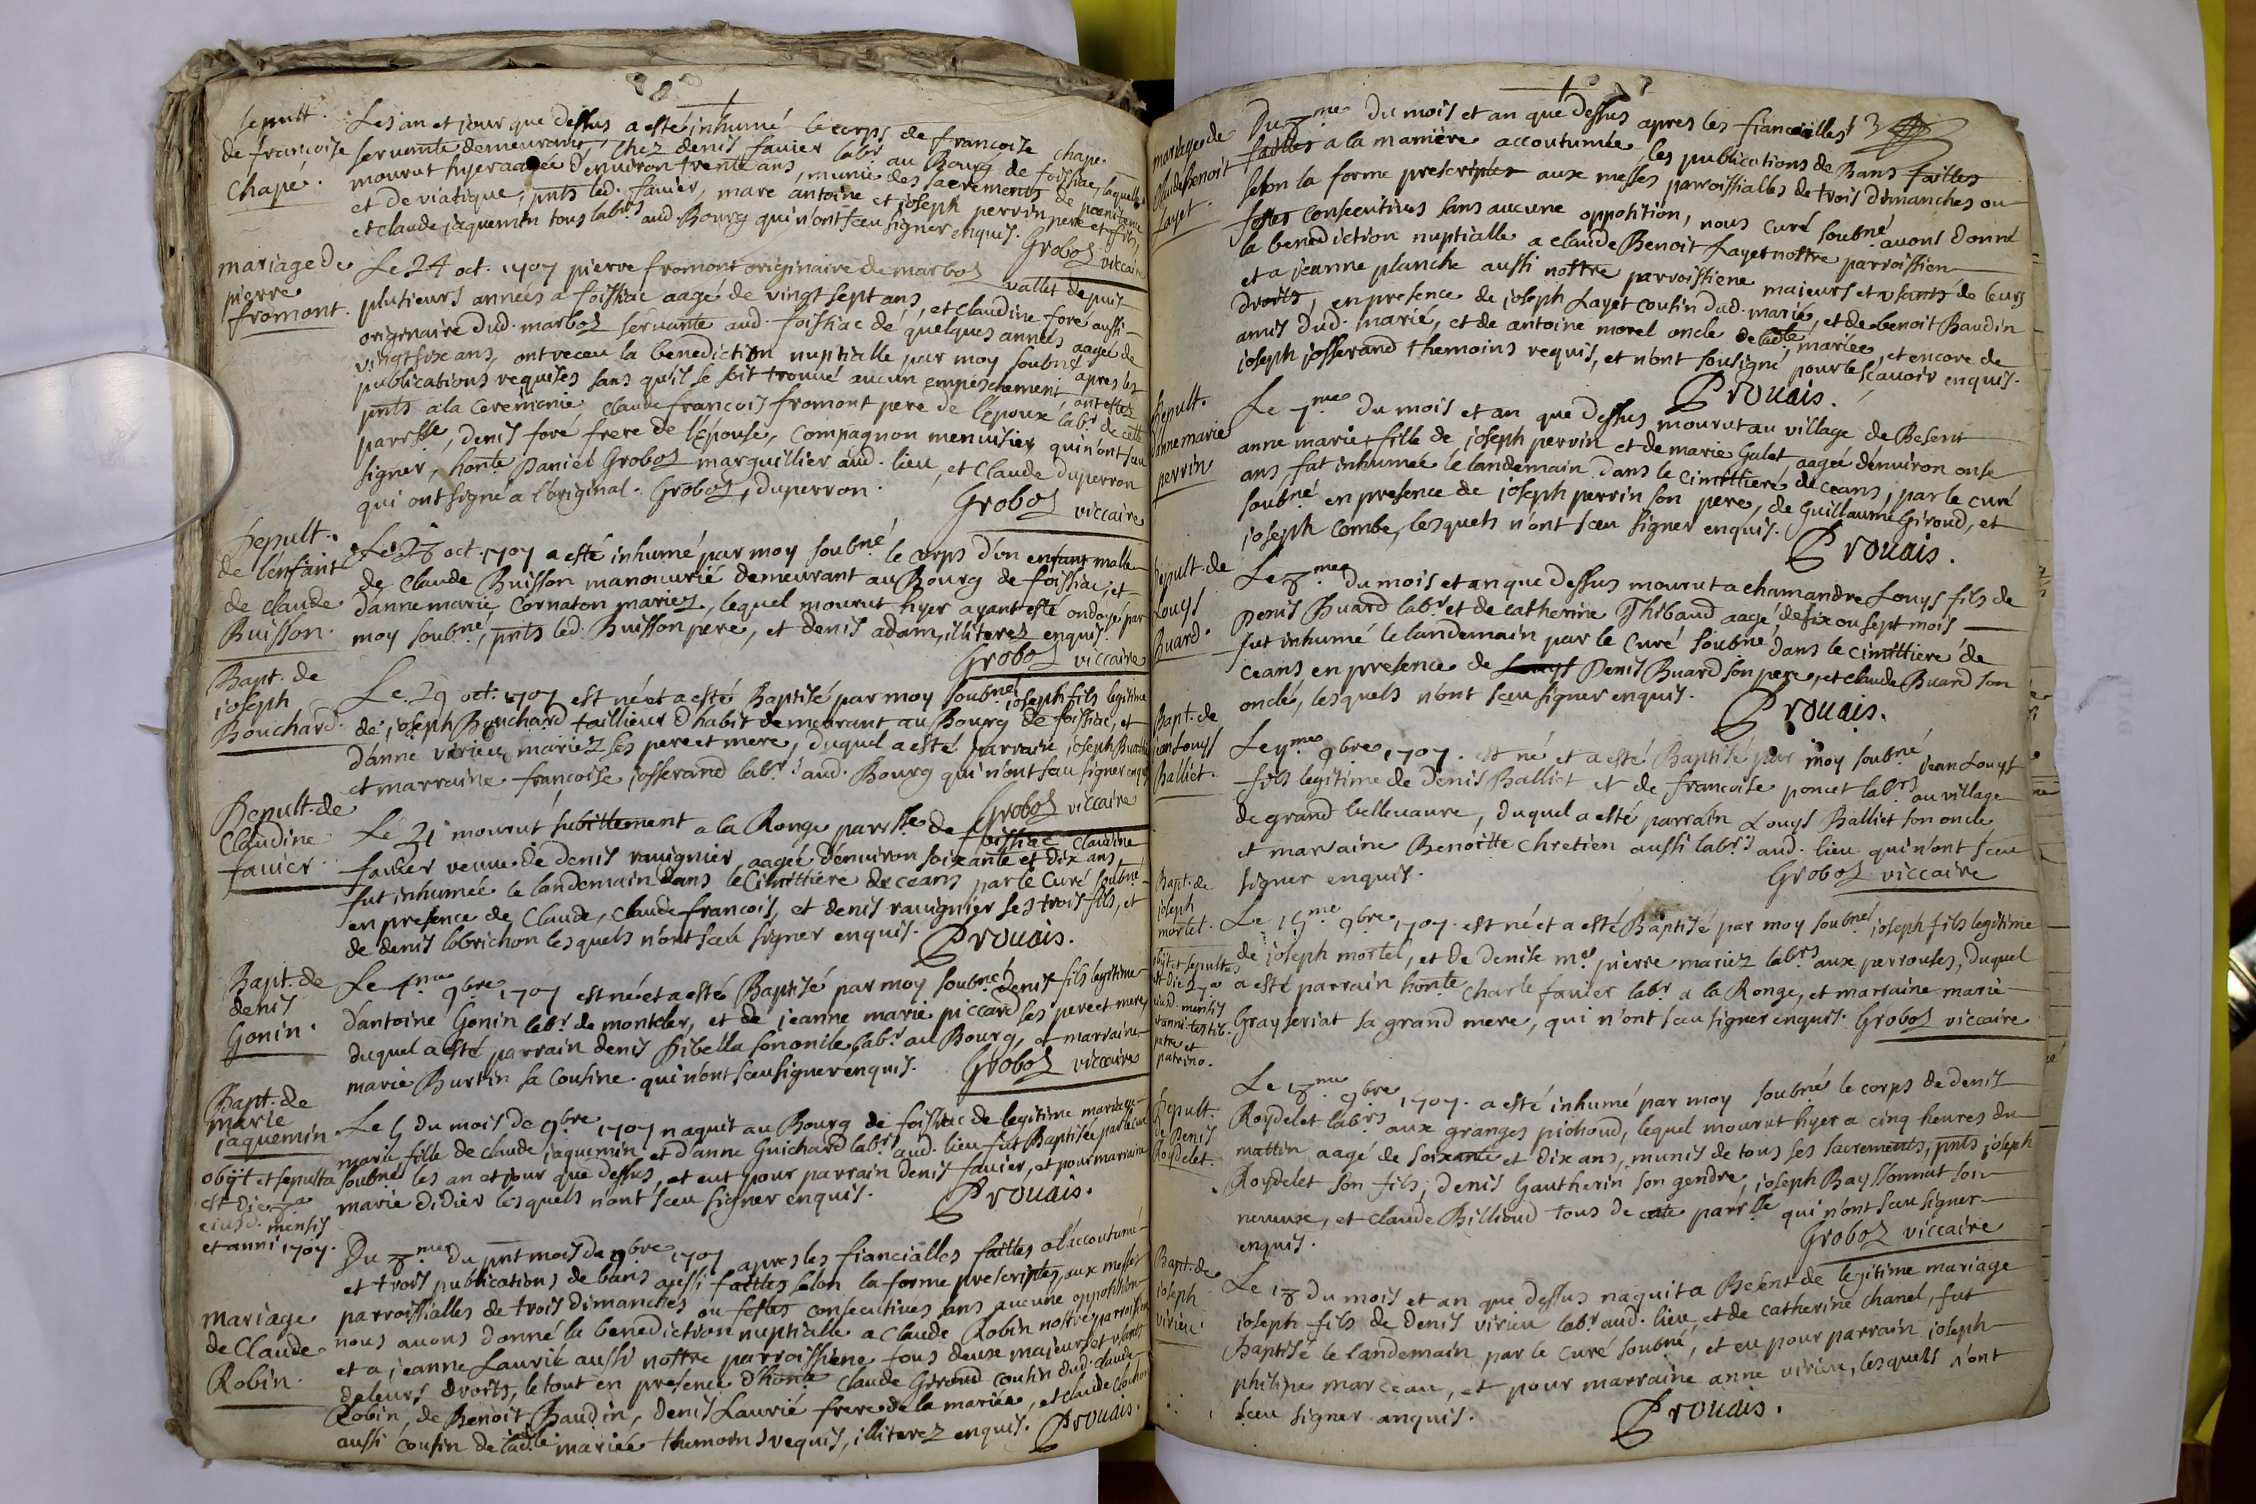 sepult.
de francoise
Chapé.
Les an et jour que dessus a esté inhumé le corps de francoise chapé
servante demeurant chez denis favier labr. au Bourg de foissiac, laquelle
mourut hyer aagée d'environ trente ans, munie des sacrements de poenitence
et de viatique, pnts led. favier, marc antoine et joseph perrin pere et fils,
et claude jaquemin tous labrs aud. Bourg qui n'ont sceu signer enquis.
Groboz viccaire
mariage de
pierre
fromont.
Le 24 oct. 1707 pierre fromont originaire de marboz vallet depuis
plusieurs années a foissiac aagé de vingt sept ans, et claudine foré aussi
originaire dud. marboz servante aud. foissiac de quelques années aagée de
vingt six ans, ont receu la benediction nuptialle par moy soubné apres les
publications requises sans qu'il se soit trouvé aucun empeschement, ont estez
pnts a la ceremonie claude francois fromont pere de l'époux labr. de cette
parrsse, denis foré frere de l'épouse, compagnon menuisier qui n'ont sceu
signer, honte Daniel Groboz marguillier aud. lieu, et Claude duperron
qui ont signé a l'original. Groboz, duperron.
Groboz viccaire
sepult.
de l'enfant
de claude
Buisson.
Le 28 oct. 1707 a esté inhumé par moy soubné le corps d'un enfant malle
de Claude Buisson manouvrié demeurant au Bourg de foissiac, et
d'anne marie Cornaton mariez, lequel mourut hyer ayant esté ondoyé par
moy soubné, pnts led. Buisson pere, et denis adam, illiterez enquis.
Groboz viccaire
Bapt. de
joseph
Bouchard.
Le 29 oct. 1707 est né et a esté Baptisé par moy soubné joseph fils legitime
de joseph Bouchard taillieur d'habit demeurant au Bourg de foissiac, et
d'anne virieu mariez ses pere et mere, duquel a esté parrain joseph
et marraine francoise josserand labrs aud. Bourg qui n'ont sceu signer enquis
Groboz viccaire
Sepult. de
Claudine
favier.
Le 31 mourut subittement a la Ronge parrsse de foissiac claudine
favier veuve de denis ravignier, aagée d'environ soixante et dix ans
fut inhumée le landemain dans le Cimittiere de ceans par le Curé soubné
en presence de Claude, Claude francois, et denis ravignier ses trois fils, et
de denis lobrichon lesquels n'ont sceu signer enquis.
Prouais.
Bapt. de
denis
Gonin.
Le 4me 9bre 1707 est né et a esté Baptisé par moy soubné denis fils legitime
d'antoine Gonin labr. de montcler, et de jeanne marie piccard ses pere et mere,
duquel a esté parrain denis Sibella son oncle labr. au Bourg, et marraine
marie Burtin sa cousine qui n'ont sceu signer enquis.
Groboz viccaire
Bapt. de
marie
jaquemin.
obyit et sepulta
est die 7a
eiusd. mensis
et anni 1707.
Le 5 du mois de 9bre 1707 naquit au Bourg de foissiac de legitime mariage
marie fille de claude jaquemin et d'anne Guichard labrs aud. lieu fut Baptisée par le curé
soubné les an et jour que dessus, et eut pour parrain denis favier, et pour marraine
marie didier lesquels n'ont sceu signer enquis.
Prouais.
mariage
de Claude
Robin.
Du 8me du pnt mois de 9bre 1707 apres les fiancialles faittes a l'accoutumé
et trois publications de bans aussi faittes selon la forme prescriptes, aux messes
parroissialles de trois dimanches ou festes consecutives sans aucune opposition
nous avons donné la benediction nuptialle a Claude Robin nostre parroissien
et a jeanne Laurié aussi nostre parroissiene tous deux majeurs et usants
de leurs droits, le tout en presence d'honte Claude Giroud cousin dud. claude
Robin, de Benoit Baudin, denis Laurié frere de la mariée, et claude Cochon
aussi cousin de lade mariée themoins requis, illiterez enquis.
Prouais.
mariage de
claude Benoit
Layet.
Du 8me du mois et an que dessus apres les fiancialles
faittes a la manière accoutumée, les publications de Bans faittes
selon la forme prescriptes aux messes parroissialles de trois dimanches ou
festes consecutives sans aucune opposition, nous curé soubné avons donné
la benediction nuptialle a claude Benoit Layet nostre parroissien
et a jeanne planche aussi nostre parroissiene majeurs et usants de leurs
droits, en presence de joseph Layet cousin dud. marié, et de benoit Baudin
amis dud. marié, et de antoine morel oncle de lade mariée, et encore de
joseph josserand themoins requis, et n'ont sousigné pour le scavoir enquis.
Prouais.
Sepult.
anne marie
perrin
Le 7me du mois et an que dessus mourut au village de Besent
anne marie fille de joseph perrin et de marie Galet aagée d'environ onse
ans, fut inhumée le landemain dans le Cimittiere de ceans, par le curé
soubné en presence de joseph perrin son pere, de Guillaume Giroud, et
joseph Combe, lesquels n'ont sceu signer enquis.
Prouais.
sepult. de
Louys
Buard.
Le 8me du mois et an que dessus mourut a chamandre Louys fils de
Denis Buard labr. et de catherine Thibaud aagé de six ou sept mois
fut inhumé le landemain par le Curé soubné dans le cimittiere de
ceans en presence de Louys Denis Buard son pere, et claude Buard son
oncle, lesquels n'ont sceu signer enquis.
Prouais.
Bapt. de
jean Louys
Balliet.
Le 9me 9bre 1707. est né et a esté Baptisé par moy soubné jean Louys
fils legitime de denis Balliet et de francoise poncet labrs au village
de grand bellevavre, duquel a esté parrain Louys Balliet son oncle
et marraine Benoitte chretien aussi labrs aud. lieu qui n'ont sceu
signer enquis.
Groboz viccaire
Bapt. de
joseph
mortel.
obiit et sepultus
est die 27a
eiusd. mensis
et anni. testib.
patre et
patrino.
Le 15me 9bre 1707. est né et a esté Baptisé par moy soubné joseph fils legitime
de joseph mortel, et de denise me pierre mariez labrs aux perrouses, duquel
a esté parrain honte Charle favier labr. a la Ronge, et marraine marie
Grayseriat sa grand mere, qui n'ont sceu signer enquis. Groboz viccaire
Sepult.
de Denis
Roydelet.
Le 18me 9bre 1707. a esté inhumé par moy soubné le corps de denis
Roydelet labrs aux granges pichoud, lequel mourut hyer a cinq heures du
mattin aagé de soixante et dix ans, munis de tous ses sacrements, pnts joseph
Roydelet son fils, denis Gautherin son gendre, joseph Bayssonnat son
neveux, et claude Billioud tous de cete parrsse qui n'ont sceu signer
enquis.
Groboz viccaire
Bapt. de
joseph
virieu.
Le 18 du mois et an que dessus naquit a Besent de legitime mariage
joseph fils de denis virieu labr. aud. lieu, et de catherine chanel, fut
Baptisé le landemain par le curé soubné, et eu pour parrain joseph
philipe marceau, et pour marraine anne virieu, lesquels n'ont
sceu signer anquis.
Prouais.